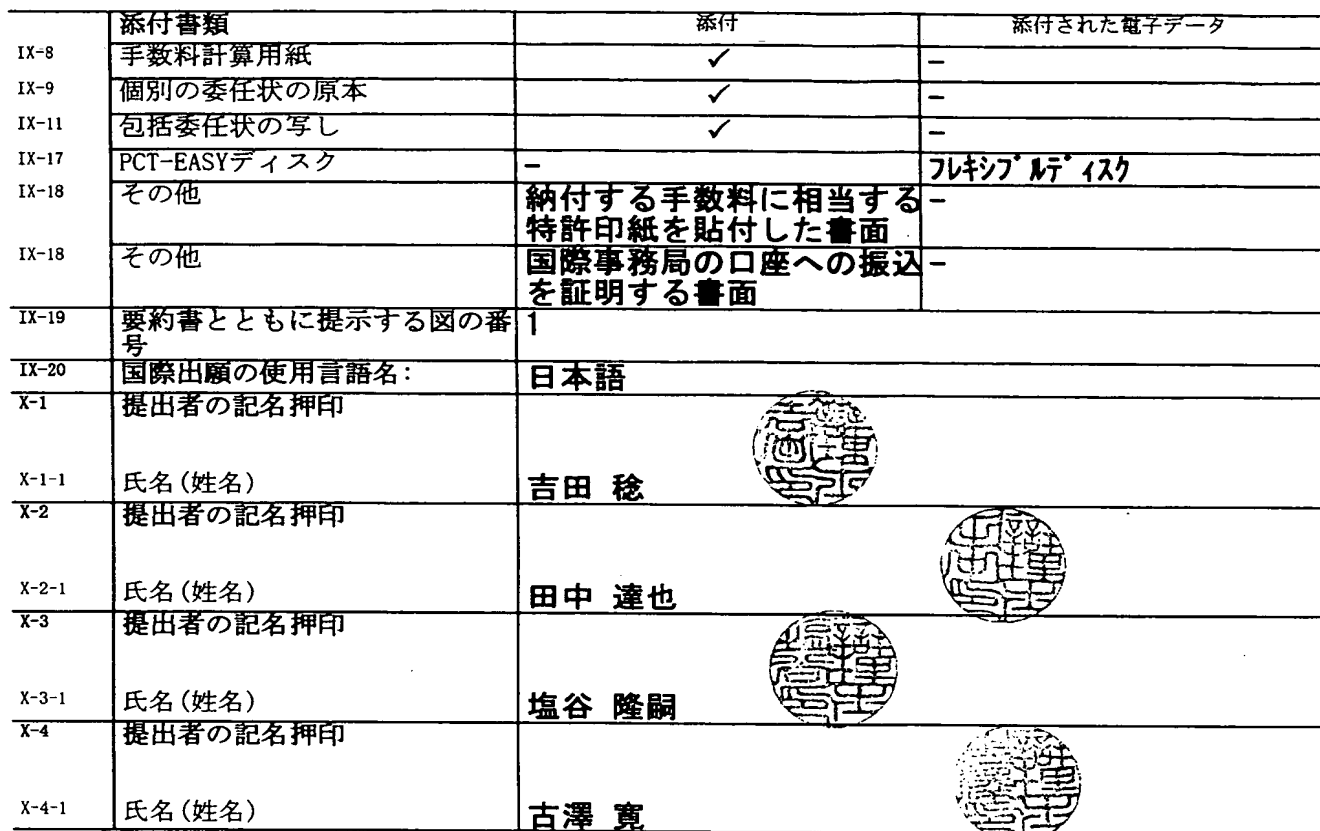 添付書類 添付 添付された電子データ
IX-8 手数料計算用紙 ✓ –
IX-9 個別の委任状の原本 ✓ –
IX-11 包括委任状の写し ✓ –
IX-17 PCT-EASYディスク – フレキシブルディスク
IX-18 その他 納付する手数料に相当する –
特許印紙を貼付した書面
IX-18 その他 国際事務局の口座への振込 –
を証明する書面
IX-19 要約書とともに提示する図の番 1
号
IX-20 国際出願の使用言語名: 日本語
X-1 提出者の記名押印
X-1-1 氏名(姓名) 吉田 稔
X-2 提出者の記名押印
X-2-1 氏名(姓名) 田中 達也
X-3 提出者の記名押印
X-3-1 氏名(姓名) 塩谷 隆嗣
X-4 提出者の記名押印
X-4-1 氏名(姓名) 古澤 寛